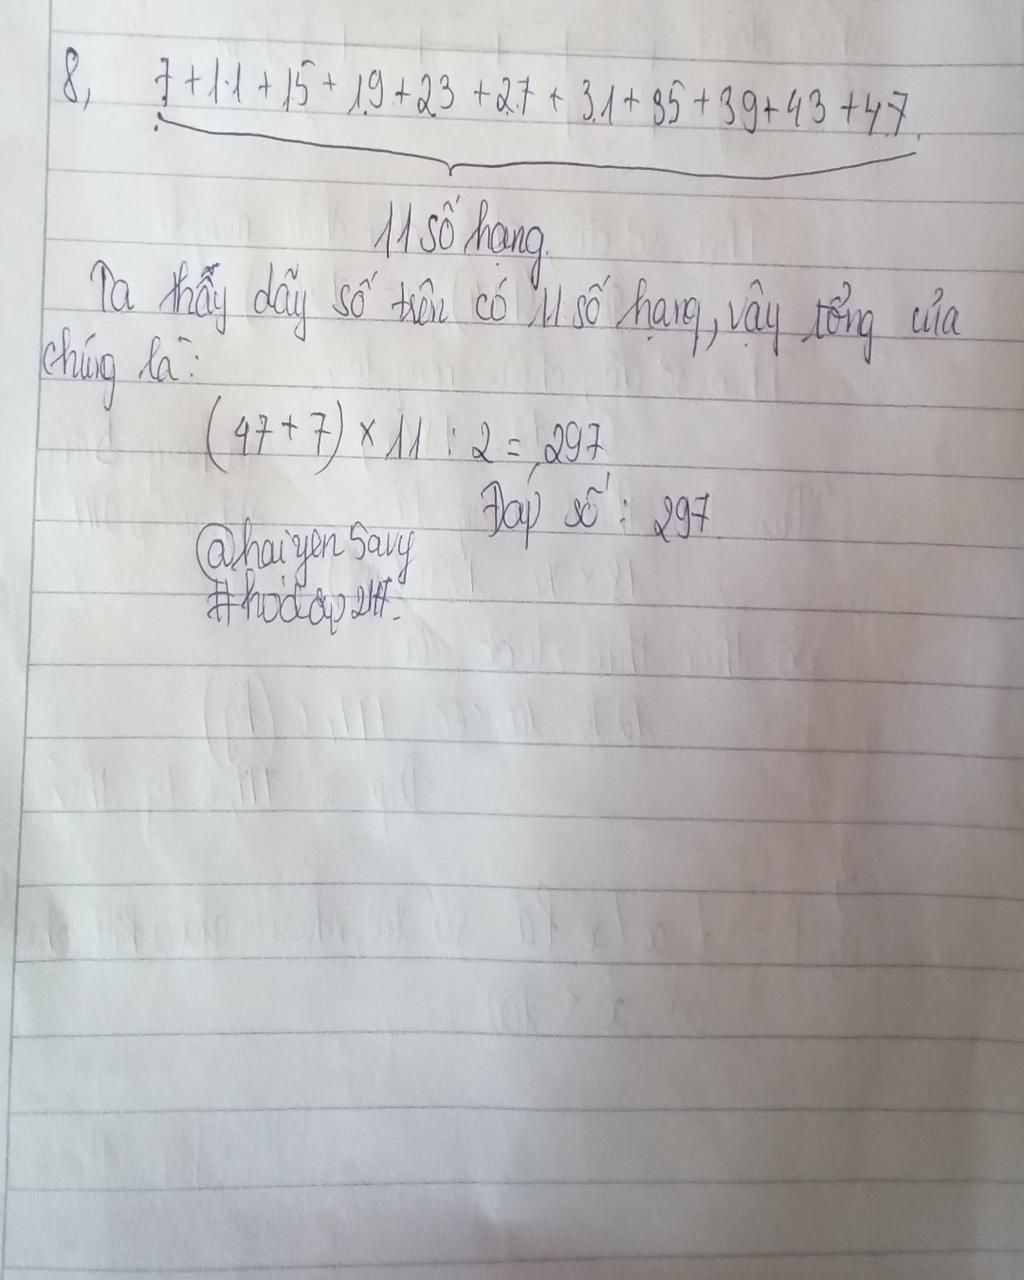 8, 7 + 11 + 15 + 19 + 23 + 27 + 31 + 35 + 39 + 43 + 47
11 số hạng.
Ta thấy dãy số trên có 11 số hạng, vậy tổng của
chúng là:
(47 + 7) × 11 : 2 = 297
Đáp số : 297
@haiyenSavy
#hoidap247.